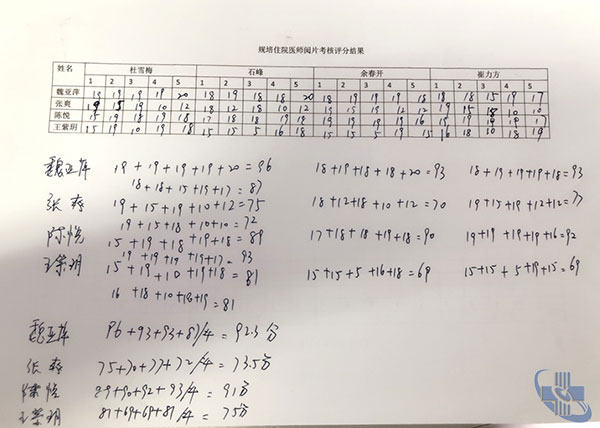 规培住院医师阅片考核评分结果
姓名 杜雪梅 石峰 余春开 崔力方
1 2 3 4 5 1 2 3 4 5 1 2 3 4 5 1 2 3 4 5
魏亚萍 19 19 19 19 20 18 19 18 18 20 18 19 19 19 18 18 18 15 19 17
张爽 19 15 19 10 12 18 12 18 10 12 19 15 19 12 12 19 15 18 10 10
陈悦 15 19 18 19 18 17 18 18 19 18 19 19 19 19 16 19 19 19 19 17
王紫玥 15 19 10 19 18 15 15 5 16 18 15 15 5 19 15 16 18 10 18 19
魏亚萍 19+19+19+19+20=96 18+19+18+18+20=93 18+19+19+19+18=93
18+18+15+19+17=87
张爽 19+15+19+10+12=75 18+12+18+10+12=70 19+15+19+12+12=77
19+15+18+10+10=72
陈悦 15+19+18+19+18=89 17+18+18+19+18=90 19+19+19+19+16=92
19+19+19+19+17=93
王紫玥 15+19+10+19+18=81 15+15+5+16+18=69 15+15+5+19+15=69
16+18+10+18+19=81
魏亚萍 96+93+93+87/4=92.3分
张爽 75+70+77+72/4=73.5分
陈悦 89+90+92+93/4=91分
王紫玥 81+69+69+81/4=75分